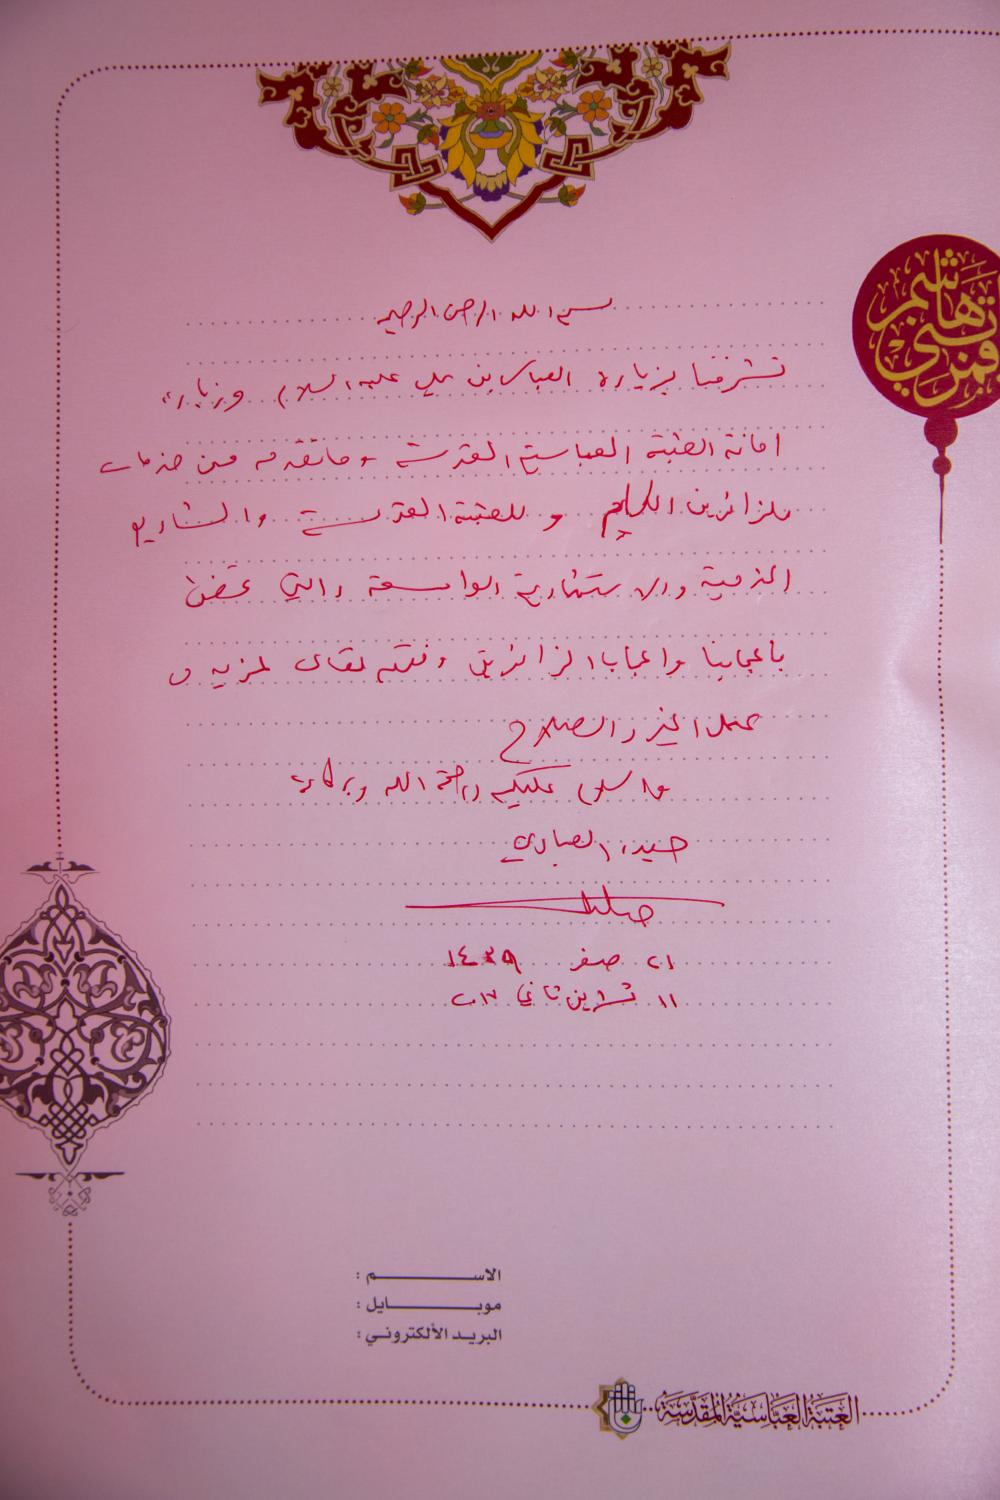 بسم الله الرحمن الرحيم
قمر بني هاشم
تشرفنا بزيارة العباس بن علي عليه السلام وزيارة
امانة العتبة العباسية المقدسة وماتقدمه من خدمات
للزائرين الكرام وللعتبة المقدسة والمشاريع
الخدمية والاستثمارية الواسعة والتي تحضى
باعجابنا واعجاب الزائرين وفقكم تعالى لمزيد و
عمل الخير والصلاح
والسلام عليكم ورحمة الله وبركاته
حيدر العبادي
٢١ صفر ١٤٣٩
١١ تشرين ثاني ٢٠١٧
الاسم :
موبايل :
البريد الألكتروني :
العتبة العباسية المقدسة